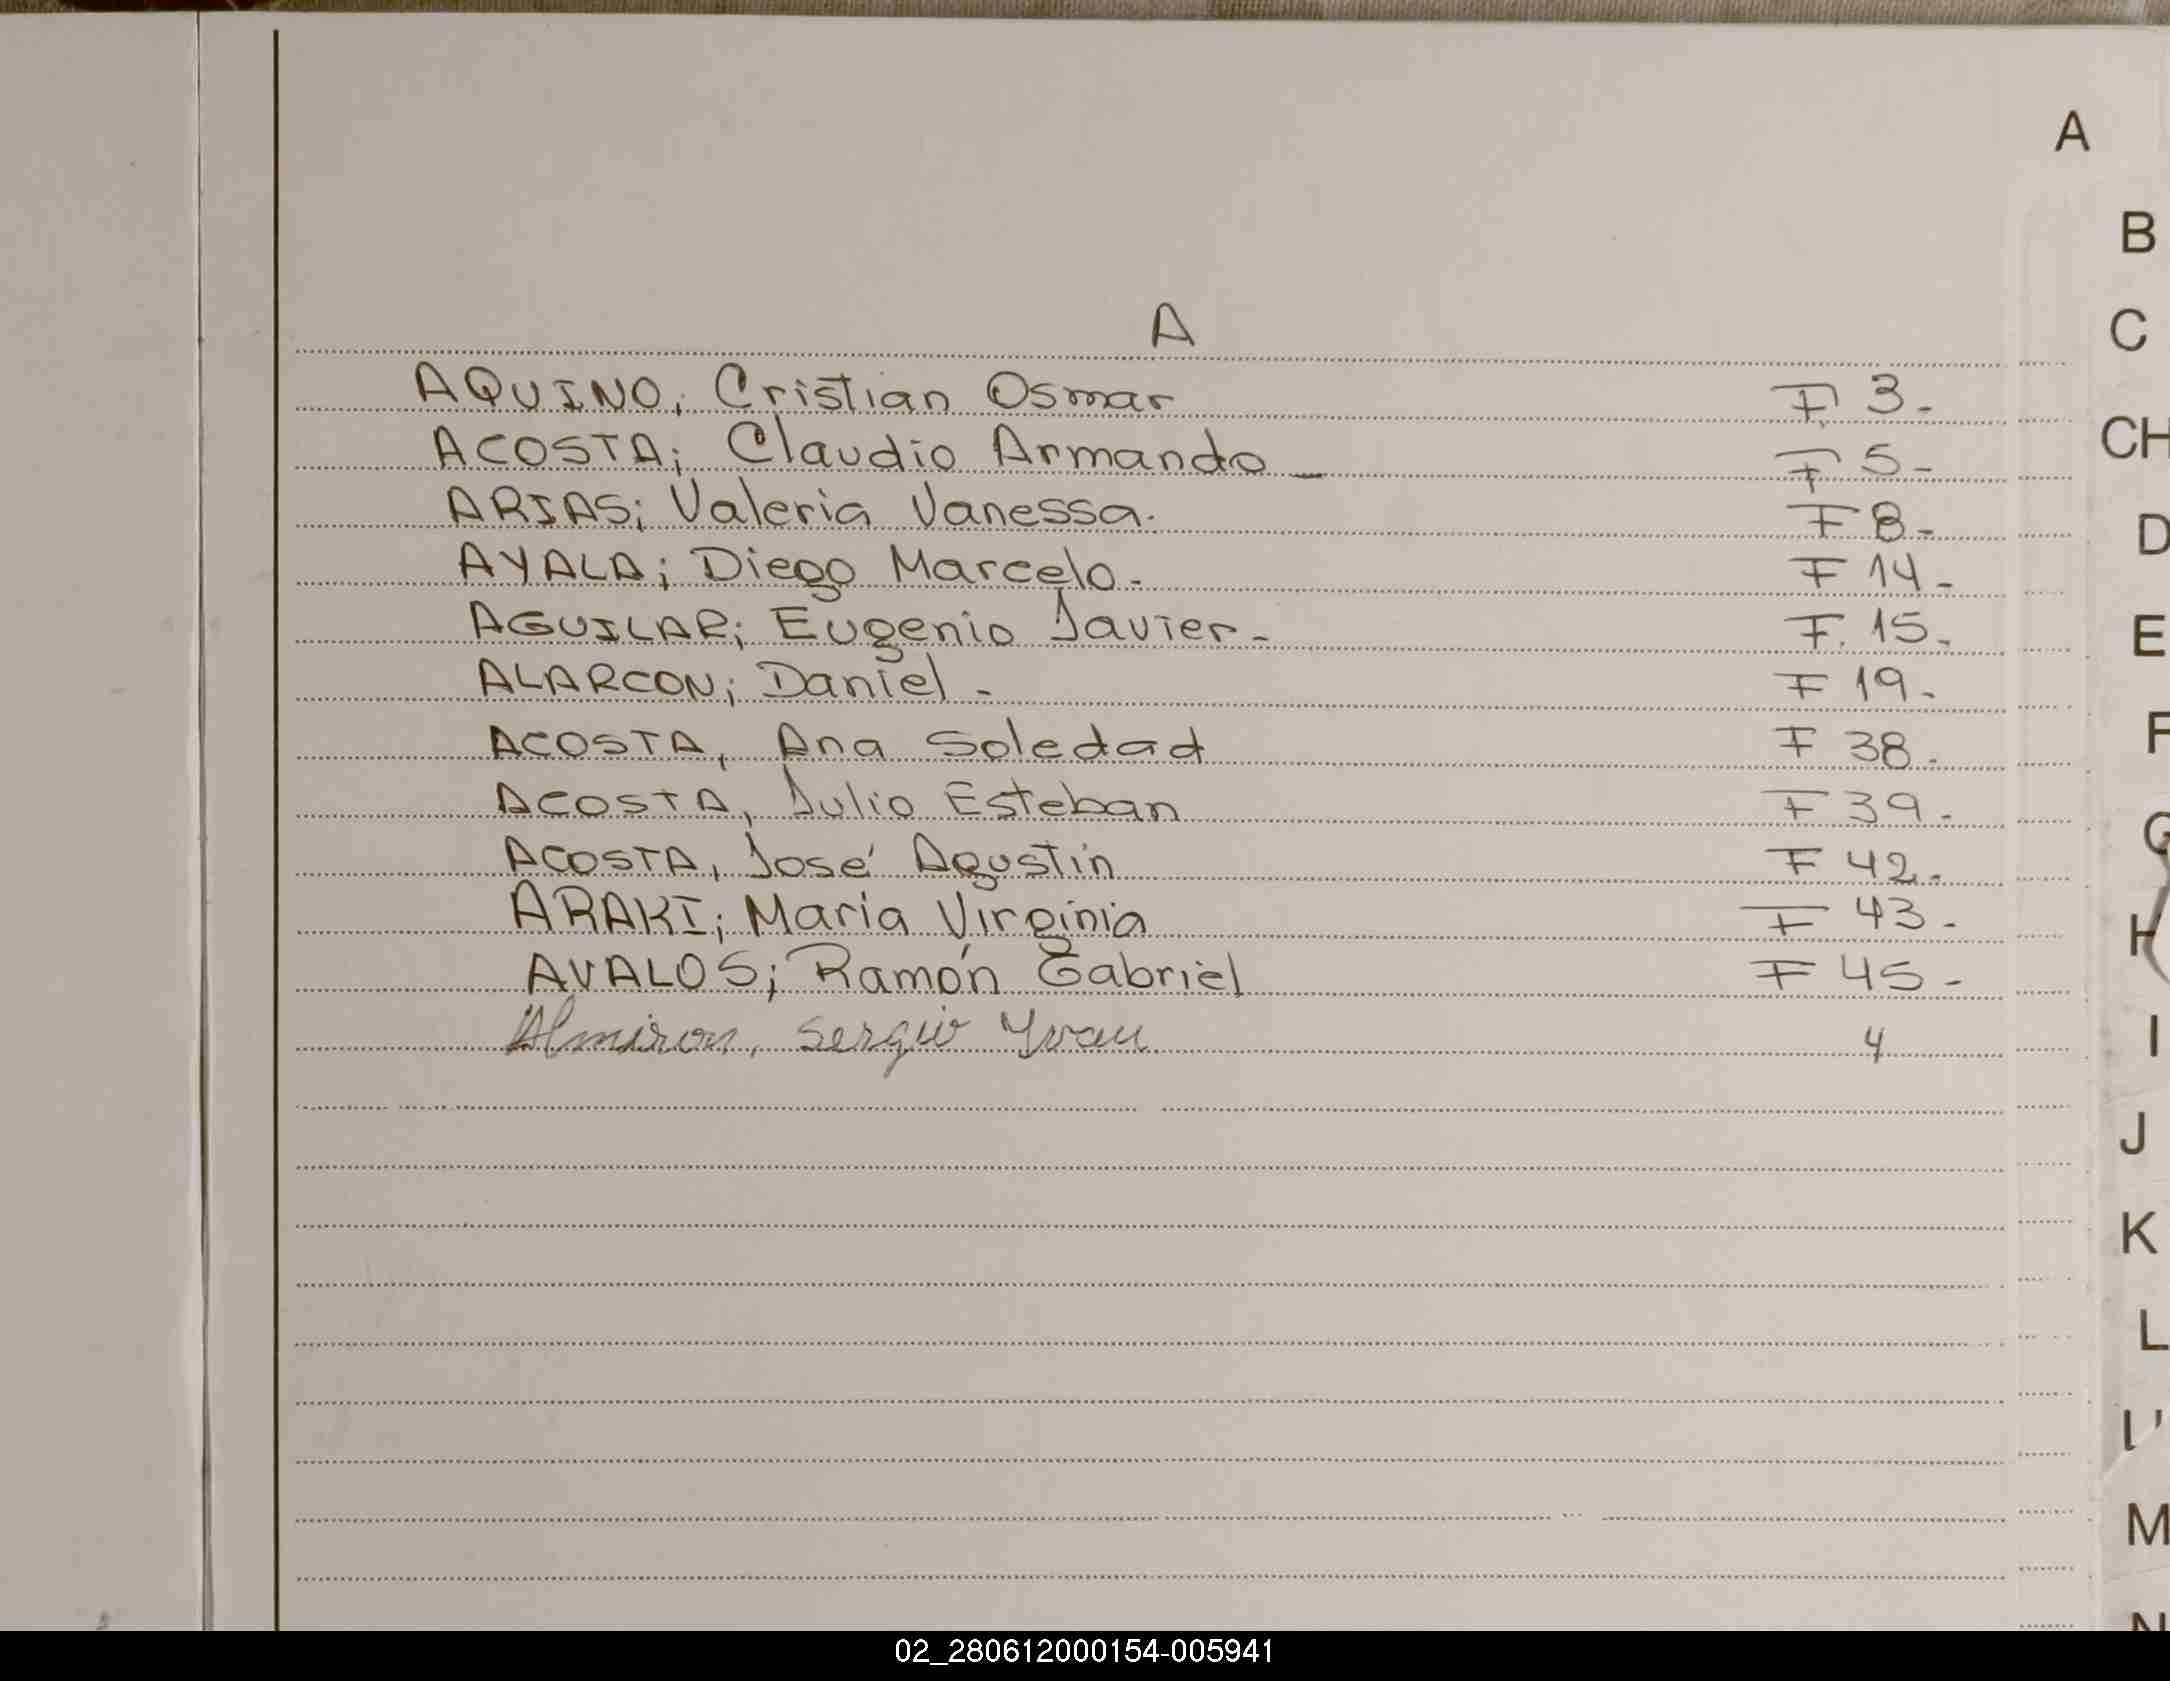 A
A
AQUINO, Cristian Osmar F. 3.-
ACOSTA; Claudio Armando - F 5-
ARIAS; Valeria Vanessa. F 8-
AYALA; Diego Marcelo- F 14-
AGUILAR; Eugenio Javier- F. 15.
ALARCON; Daniel - F 19-
ACOSTA, Ana Soledad F 38.
ACOSTA, Julio Esteban F 39-
ACOSTA, José Agustín F 42-
ARAKI; María Virginia F 43-
AVALOS; Ramón Gabriel F 45-
Almiron, Sergio Yvan 4
B
C
CH
D
E
F
G
H
I
J
K
L
M
N
02_280612000154-005941